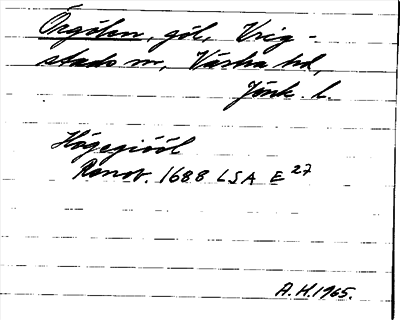 Örgölen, göl, Vrig-
stads sn, Västra hd,
Jönk. l.
Högegiööl
Renov. 1688 LSA E 27
A.H. 1965.